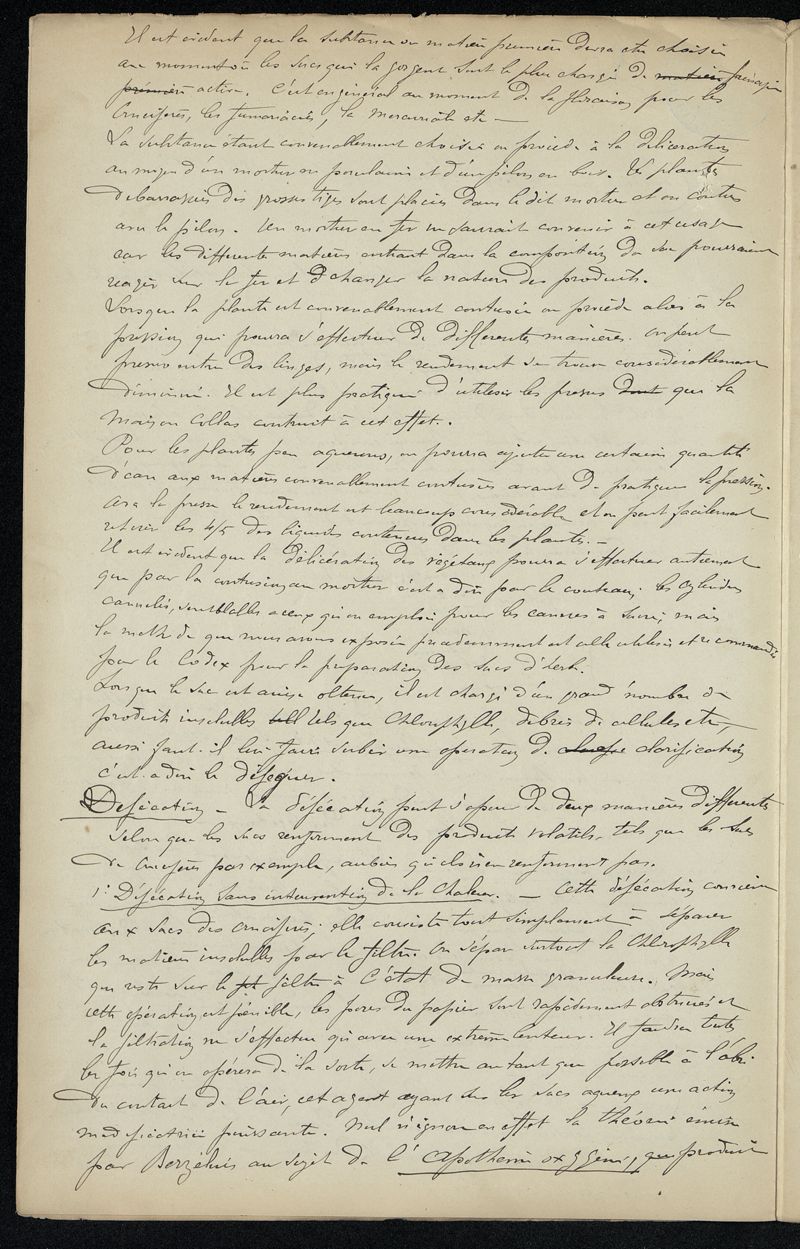 Il est évident que la substance ou matière première devra être choisie
au moment où les sucs qui la gorgent sont le plus chargé de matière principe
première actives. C'est en général au moment de la floraison pour les
Crucifères, les fumariacés, la mercuriale etc —
La substance étant convenablement choisie on procède à la délicération
au moyen d'un mortier en porcelaine et d'un pilon en bois. Les plantes
débarrassées des grosses tiges sont placées dans le dit mortier et on contuse
avec le pilon. Un mortier en fer ne saurait convenir à cet usage
car les différentes matières entrant dans la composition du suc pourraient
réagir sur le fer et échanger la nature des produits.
Lorsque la plante est convenablement contusée on procède alors à la
pression qui pourra s'effectuer de différentes manières. On peut
presser entre des linges, mais le rendement se trouve considérablement
diminué. Il est plus pratique d'utiliser les presses dont que la
maison Collas construit à cet effet.
Pour les plantes peu aqueuses, on pourra ajouter une certaine quantité
d'eau aux matières convenablement contusées avant de pratiquer la pression.
Avec la presse le rendement est beaucoup considérable et on peut facilement
retirer les 4/5 des liquides contenus dans les plantes. —
Il est évident que la délicération des végétaux pourra s'effectuer autrement
que par la contusion au mortier c'est à dire par le couteau, les cylindres
cannelés, semblables a ceux qu'on emploie pour les cannes à sucre; mais
la méthode que nous avons exposée précédemment est celle utilisée et recommandée
par le Codex pour la préparation des sucs d'herbes.
Lorsque le suc est ainsi obtenu, il est chargé d'un grand nombre de
produits insolubles tell tels que Chlorophylle, débris de cellules etc,
aussi faut-il leur faire subir une opération de clarification
c'est a dire le déféquer.
Deféca­tion — La défécation peut s'opérer de deux manières différentes
selon que les sucs renferment des produits volatils, tels que les sucs
de crucifères par exemple, ou bien qu'ils n'en renferment pas.
1° Défécation sans intervention de la Chaleur. — Cette défécation convient
aux sucs des crucifères; elle consiste tout simplement à séparer
les matières insolubles par le filtre. On sépare surtout la Chlorophylle
qui reste sur le filtre à l'état de masse granuleuse. Mais
cette opération est pénible, les pores du papier sont rapidement obstrués et
la filtration ne s'effectue qu'avec une extrême lenteur. Il faudra toutes
les fois qu'on opérera de la sorte, se mettre autant que possible à l'abri
du contact de l'air, cet agent ayant sur les sucs aqueux une action
modificatrice puissante. Nul n'ignore en effet la théorie émise
par Berzélius au sujet de l'apothème oxygéné, que produit